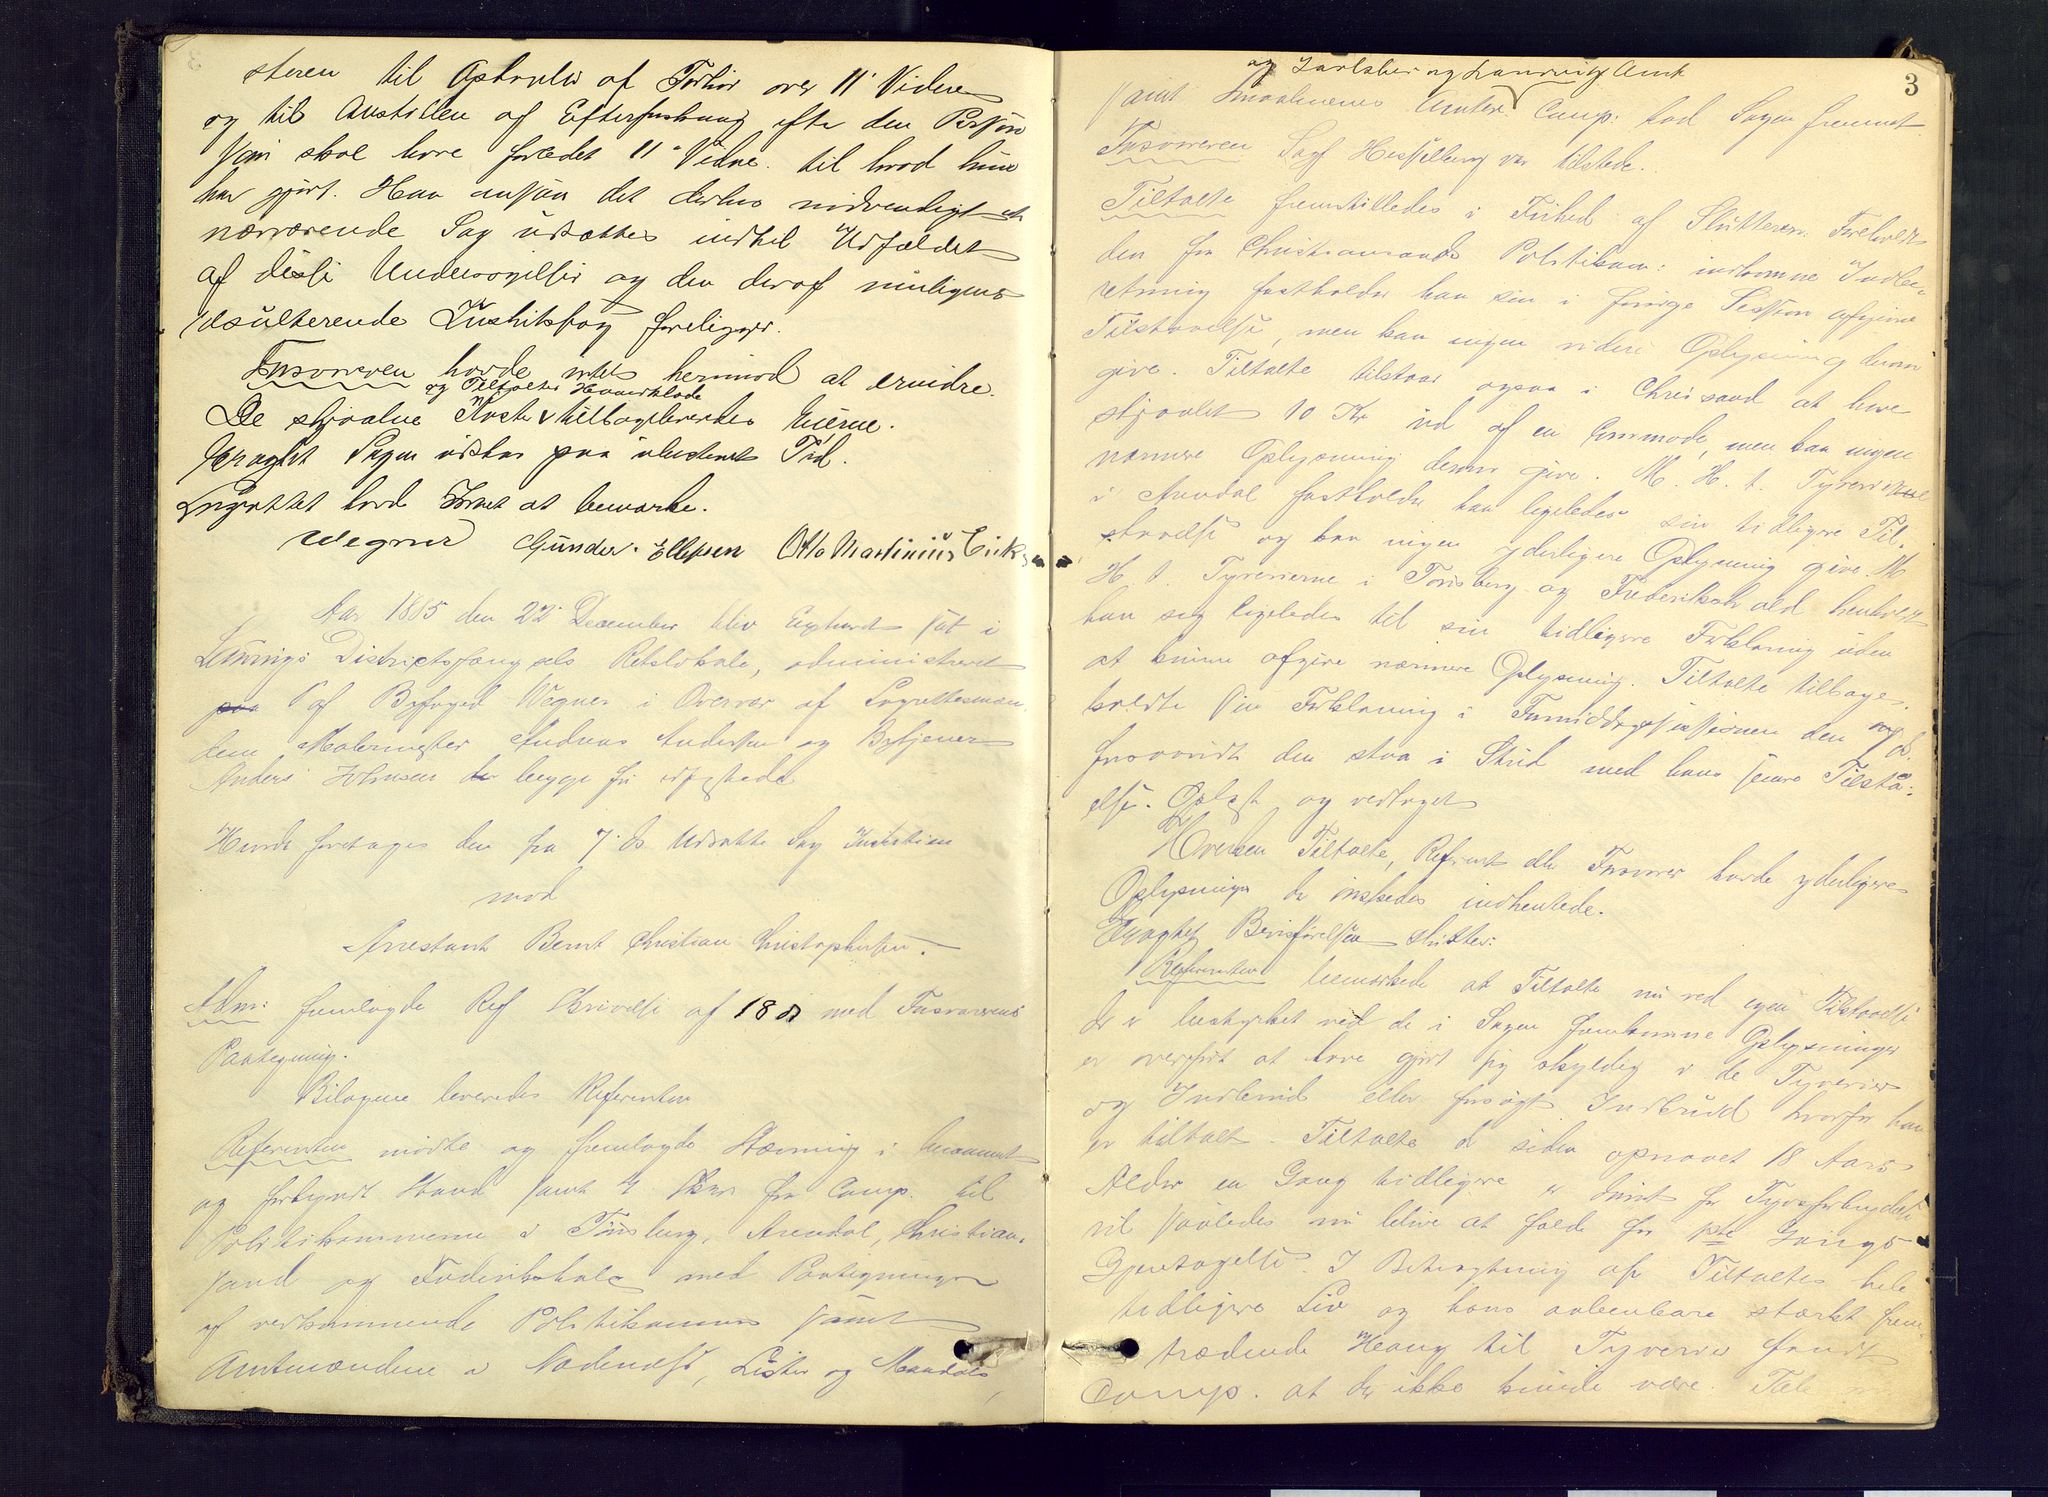 steren til Optagelse af Forhør over 11' Vidne
og til Anstillen af Efterforskning efter den Person
som skal have forledet 11' Vidne til hvad hun
har gjort. Han ansaa det derhos nødvendigt at
nærværende Sag udsættes indtil Udfaldet
af disse Undersøgelser og den deraf muligens
resulterende Justitssag foreligger.
Forsvareren havde intet herimod at erindre.
og Tiltaltes Haandklæde
De stjaalne Koster tilbageleveredes Eierne.
Eragtet Sagen udstaar paa ubestemt Tid.
Lagrettet havde Intet at bemærke.
Wegner Gunder Ellefsen Otto Martinius Eriksen
Aar 1885 den 22' December blev Extraret sat i
Districtsfængsels Retslokale, administreret
af Byfoged Wegner i Overvær af Lagrettesmæn
dene Malermester Andreas Andersen og
Anders Johnsen begge før edfæstede
Hvorda foretages den fra 7' ds Udsatte Sag Justitien
mod
Arrestant Bernt Christian Christophersen.
Adm: fremlagde Ref Skrivelse af 18 ds med Forsvarerens
Paategning.
Bilagene leveredes Referenten
Referenten mødte og fremlagde Stævning i berammet
og forkyndt Stand samt 4 Skr. fra Comp. til
Politikammerne i Tønsberg, Arendal, Christian-
sand og Frederikshald med Paategninger
af vedkommende Politikammer samt
Amtmændene i Nedenæs, Lister og Mandals,
3
og Jarlsberg og Laurvigs Amt
samt Smaalenenes Amter. Comp: lod Sagen fremmet.
Forsvareren Sagf Hesselberg var tilstede.
Tiltalte fremstilledes i Frihed af Slutteren. Foreholdt
den fra Christianssands Politikam: indkomne Indbe-
retning fastholder han sin i forrige Session afgivne
Tilstaaelse, men kan ingen videre Oplysning derom
give. Tiltalte tilstaar ogsaa i Chrissand at have
stjaalet 10 Kr ud af en Commode, men kan ingen
nærmere Oplysning derom give. M. H. t. Tyverierne
i Arendal fastholder han ligeledes sin tidligere Til-
staaelse og kan ingen yderligere Oplysning give. M
H. t. Tyverierne i Tønsberg og Frederikshald henholdt
han sig ligeledes til sin tidligere Forklaring uden
at kunne afgive nærmere Oplysning. Tiltalte tilbage-
holdte sin Forklaring i Formiddagssessionen den
forsaavidt den staar i Strid med hans senere Tilstaa-
else. Oplæst og vedtaget
Hverken Tiltalte, Referent eller Forsvarer havde yderligere
Oplysninger der ønskedes indhentede.
Eragtet Bevisførelsen slutter:
Referenten bemærkede at Tiltalte nu ved egen Tilstaaelse
der er bestyrket ved de i Sagen fremkomne Oplysninger
er overført at have gjort sig skyldig i de Tyverier
og Indbrud eller forsøgt Indbrud hvorfor han
er tiltalt. Tiltalte der siden opnaaet 18 Aars
Alder en Gang tidligere er dømt for Tyvsforbrydelse
vil saaledes nu blive at fælde for 1ste Gangs
Gjentagelse. I Betragtning af Tiltaltes hele
tidligere Liv og hans aabenbare stærkt frem-
trædende Hang til Tyverier fandt
Comp. at der ikke kunde være Tale